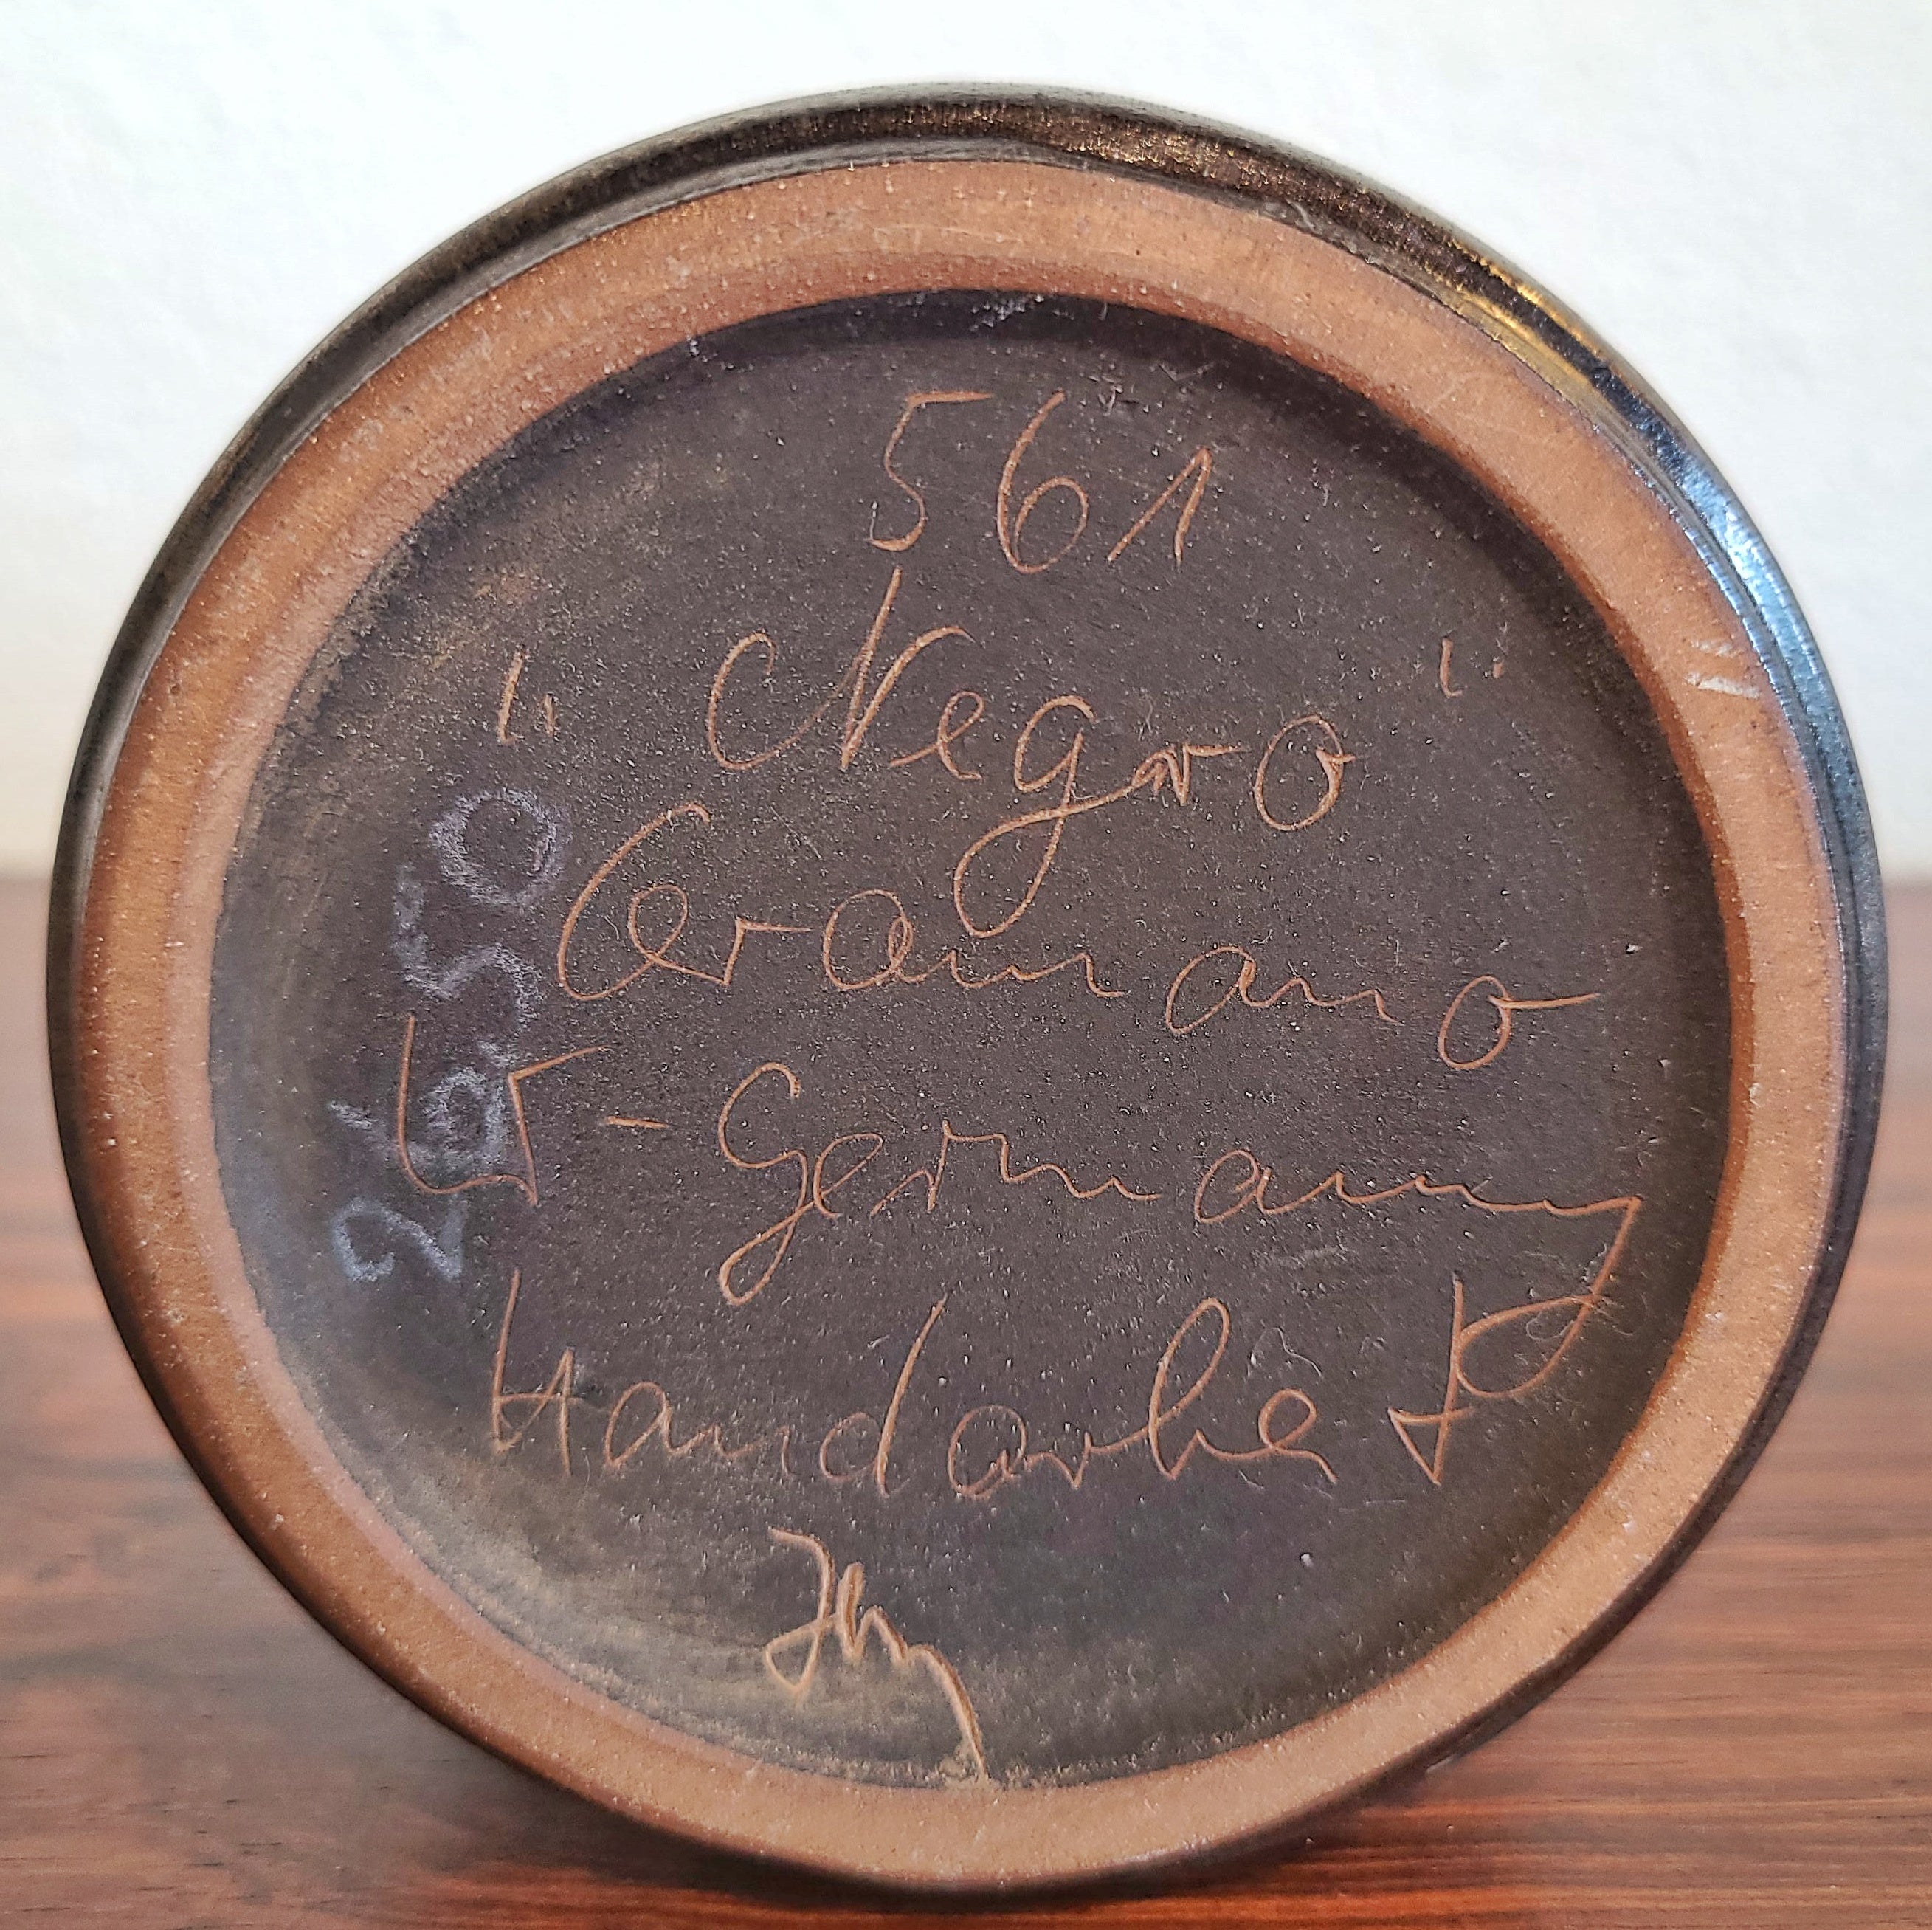 561
" Negro "
Ceramano
W-Germany
Handarbeit
26.50